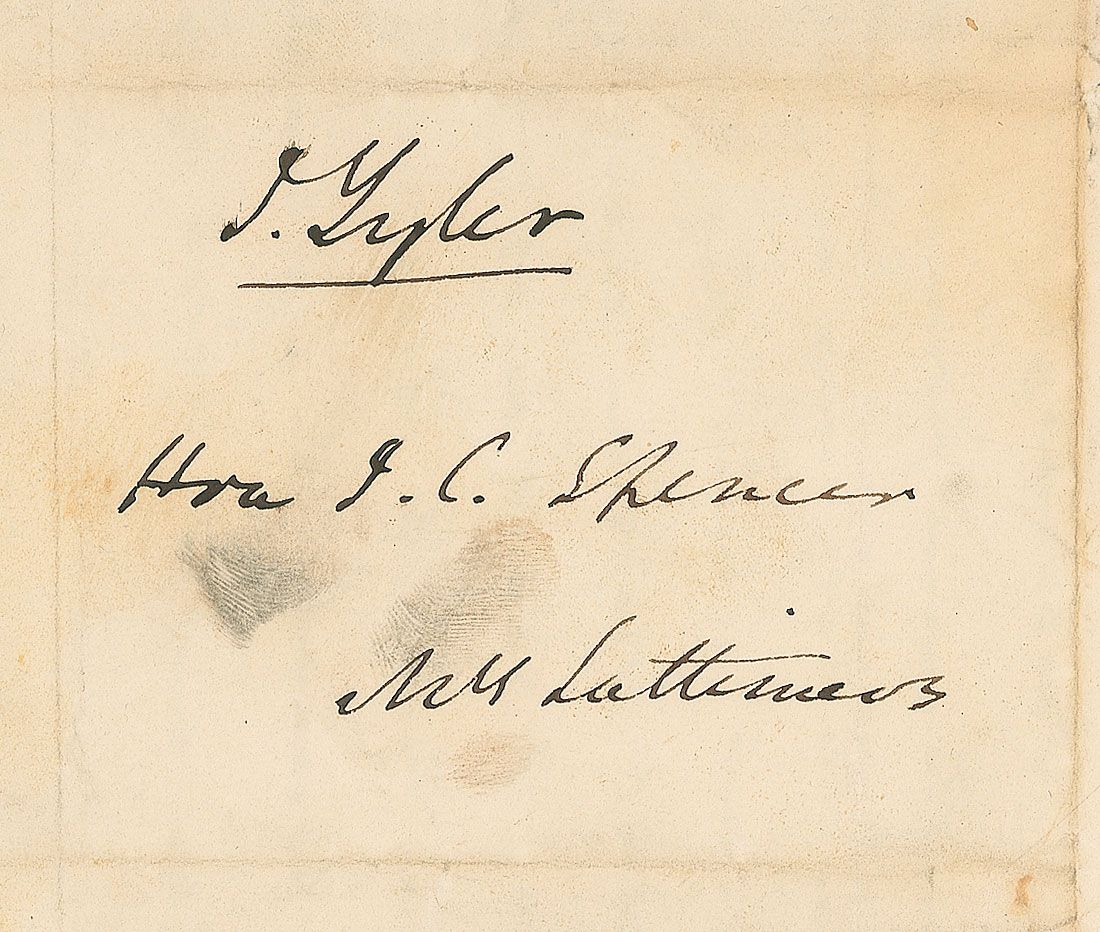 J. Tyler
Hon J. C. Spencer
Mrs Lattimers